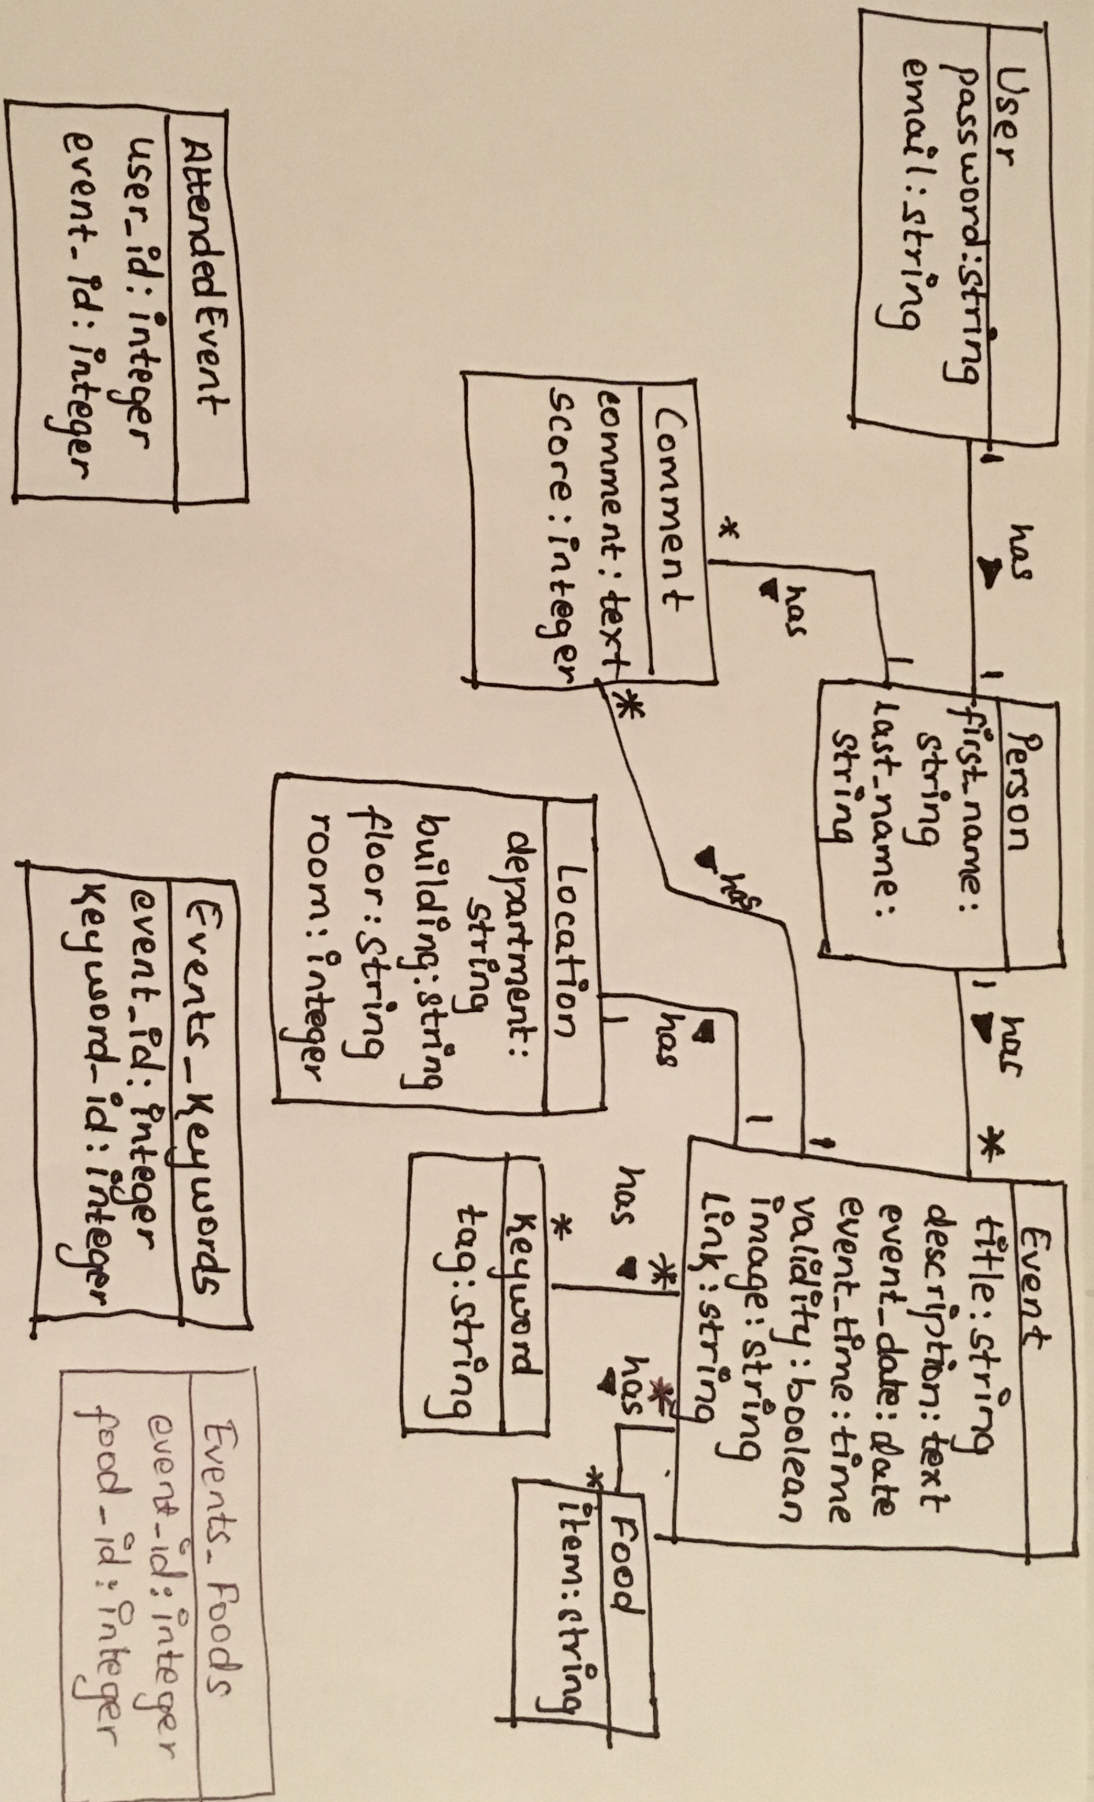 User
password:string
email:string
1
has
1
Person
first_name:
string
last_name:
string
1
has
*
Event
title:string
description:text
event_date:date
event_time:time
validity:boolean
image:string
Link:string
1
has
*
Comment
comment:text
score:integer
*
has
1
1
has
1
Location
department:
string
building:string
floor:string
room:integer
*
has
*
Keyword
tag:string
*
has
*
Food
item:string
AttendedEvent
user_id:integer
event_id:integer
Events_Keywords
event_id:integer
Keyword_id:integer
Events_Foods
event_id:integer
food_id:integer